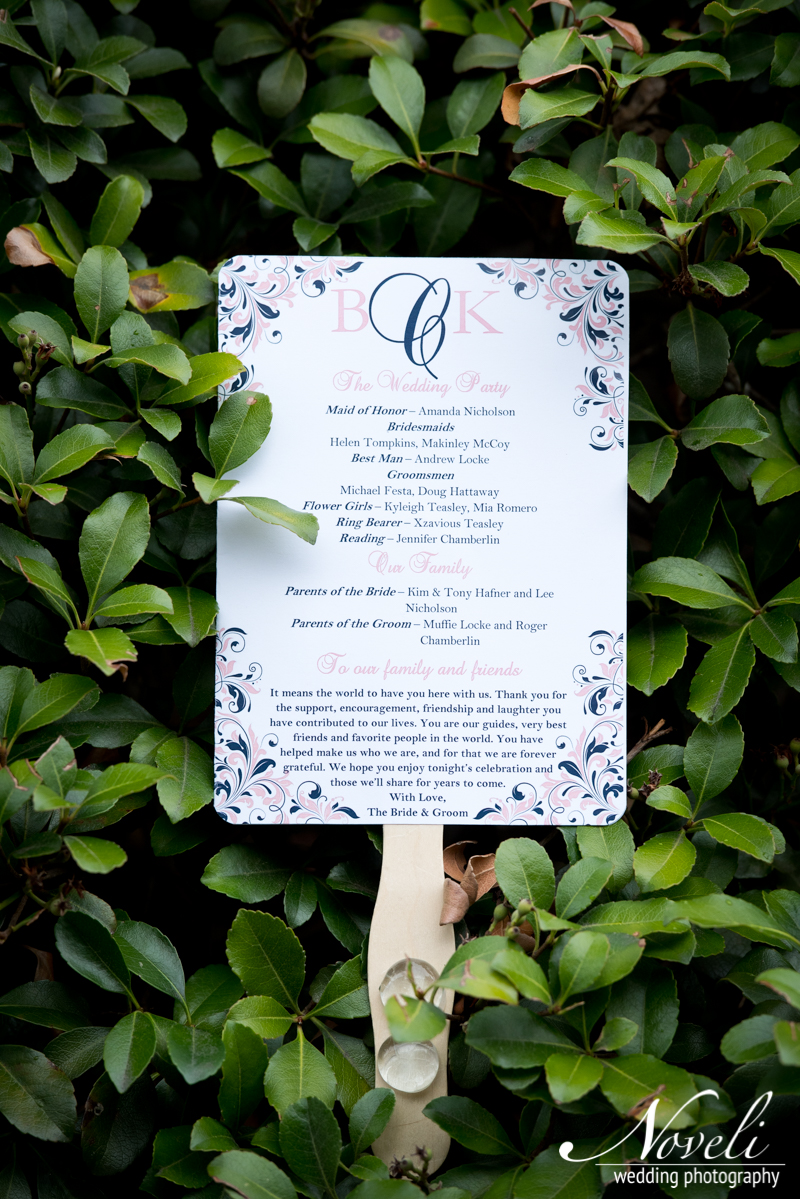 B C K
The Wedding Party
Maid of Honor – Amanda Nicholson
Bridesmaids
Helen Tompkins, Makinley McCoy
Best Man – Andrew Locke
Groomsmen
Michael Festa, Doug Hattaway
Flower Girls – Kyleigh Teasley, Mia Romero
Ring Bearer – Xzavious Teasley
Reading – Jennifer Chamberlin
Our Family
Parents of the Bride – Kim & Tony Hafner and Lee
Nicholson
Parents of the Groom – Muffie Locke and Roger
Chamberlin
To our family and friends
It means the world to have you here with us. Thank you for
the support, encouragement, friendship and laughter you
have contributed to our lives. You are our guides, very best
friends and favorite people in the world. You have
helped make us who we are, and for that we are forever
grateful. We hope you enjoy tonight's celebration and
those we'll share for years to come.
With Love,
The Bride & Groom
Noveli
wedding photography